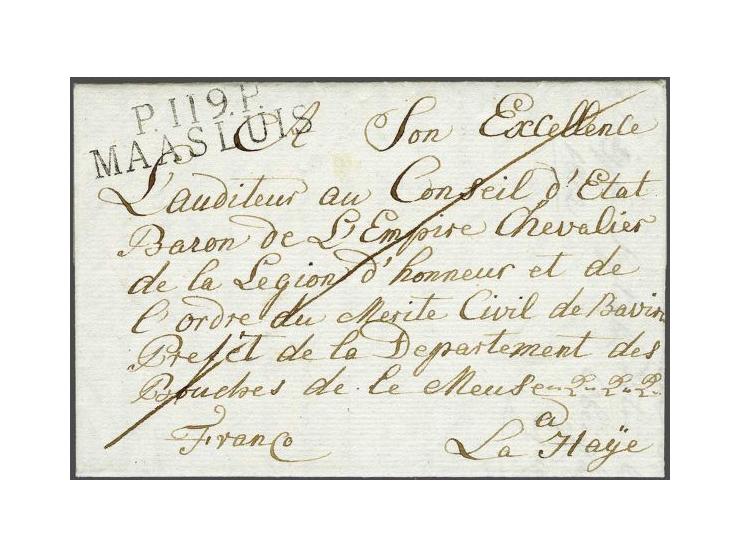 P.119.P.
MAASLUIS
A Son Excellence
L'auditeur au Conseil d'Etat
Baron de L'Empire Chevalier
de la Legion d'honneur et de
l'ordre du Merite Civil de Bavire
Prefet de la Departement des
Bouches de le Meuse
a
Franco
La Haÿe